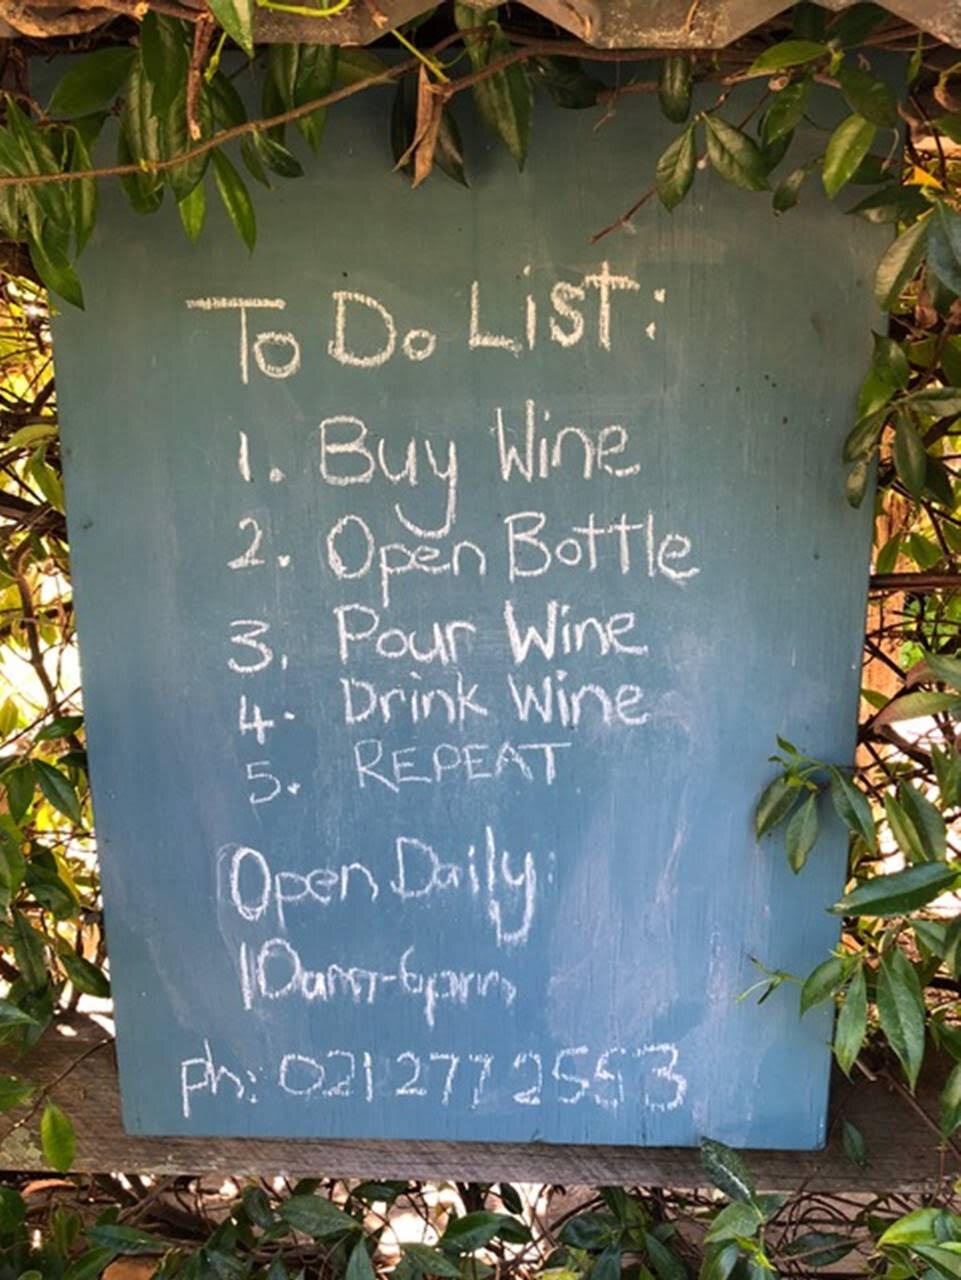 To Do List:
1. Buy Wine
2. Open Bottle
3. Pour Wine
4. Drink Wine
5. REPEAT
Open Daily:
10am-6pm
ph: 021 277 2553